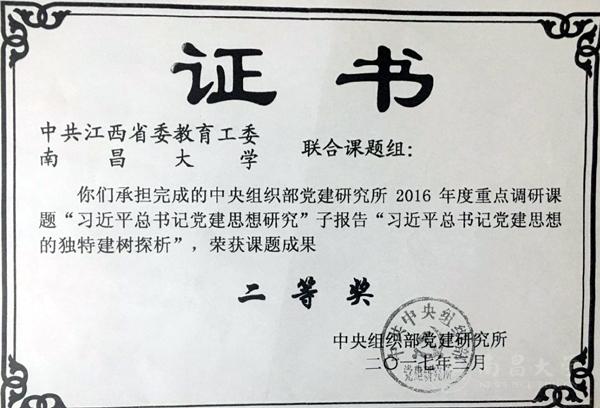 证书
中共江西省委教育工委
南昌大学
联合课题组：
你们承担完成的中央组织部党建研究所 2016 年度重点调研课
题“习近平总书记党建思想研究”子报告“习近平总书记党建思想
的独特建树探析”，荣获课题成果
二等奖
中共中央组织部
党建研究所
中央组织部党建研究所
二〇一七年二月
南昌大学